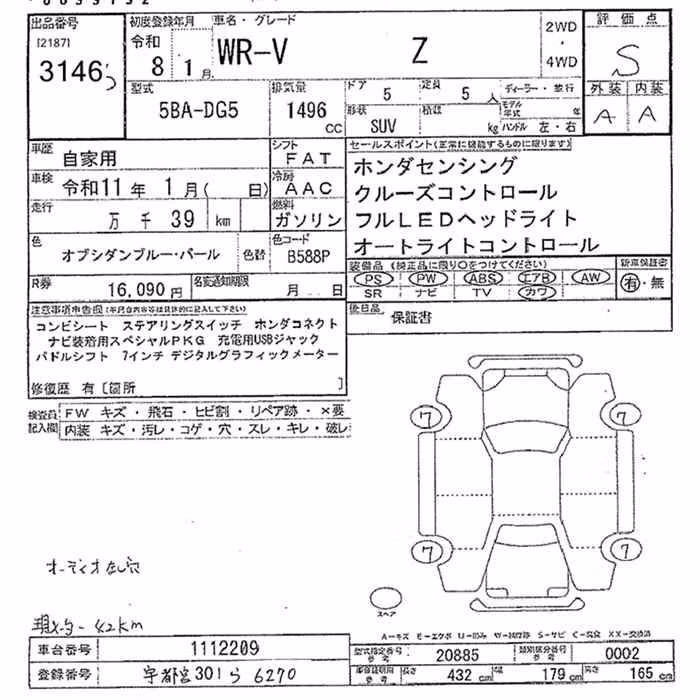 出品番号 初度登録年月 車名・グレード 2WD・4WD 評価点
[2187] 令和 8年 1月 WR-V Z S
3146
型式 5BA-DG5 排気量 1496 CC ドア 5 定員 5人 ディーラー・並行 外装 A 内装 A
形状 SUV 積載 kg モデル年式 年 ハンドル 左・右
車歴 自家用 シフト FAT セールスポイント(正常に機能するものに限ります)
車検 令和11年 1月( 日) 冷房 AAC ホンダセンシング
クルーズコントロール
走行 万 千 39 km 燃料 ガソリン フルLEDヘッドライト
オートライトコントロール
色 オブシダンブルー・パール 色替 色コード B588P
装備品(純正品に限り○をつけてください) 新車保証書
PS PW ABS エアB AW 有・無
SR ナビ TV カワ
R券 16,090円 名変通知期限 月 日
後日品 保証書
注意事項申告欄
コンビシート ステアリングスイッチ ホンダコネクト
ナビ装着用スペシャルPKG 充電用USBジャック
パドルシフト 7インチ デジタルグラフィックメーター
修復歴 有 [箇所 ]
検査員記入欄 FW キズ・飛石・ヒビ割・リペア跡・×要
内装 キズ・汚レ・コゲ・穴・スレ・キレ・破レ
7 7
7 7
スペア
オーディオ
42km
A-キズ
車台番号 1112209 型式指定番号 参考 20885 類別区分番号 参考 0002
登録番号 宇都宮301ら6270 参考 長さ 432 cm 幅 179 cm 高さ 165 cm